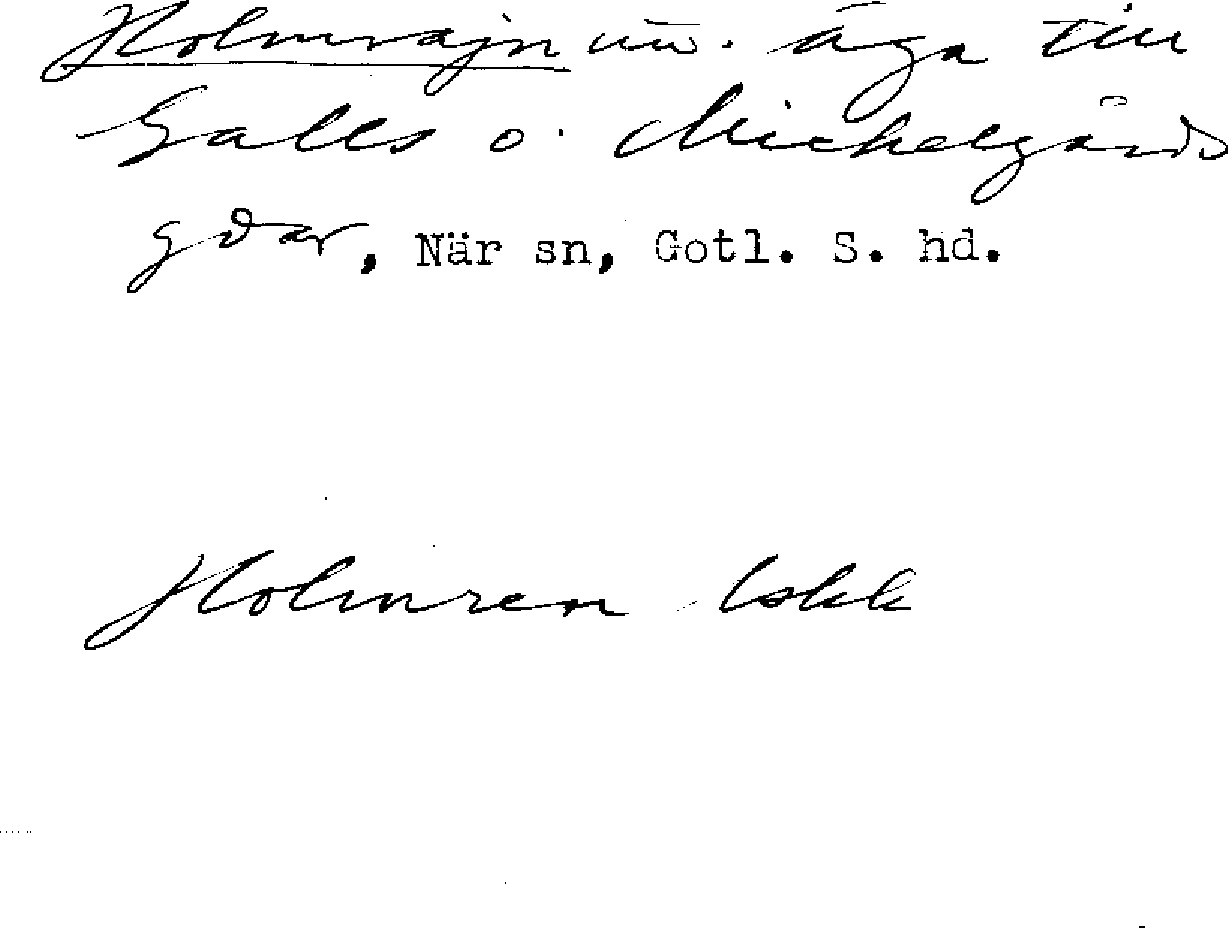 Holmrajn äga till
Galls o. Michelgårds
gdar, När sn, Gotl. S. hd.
Holmren